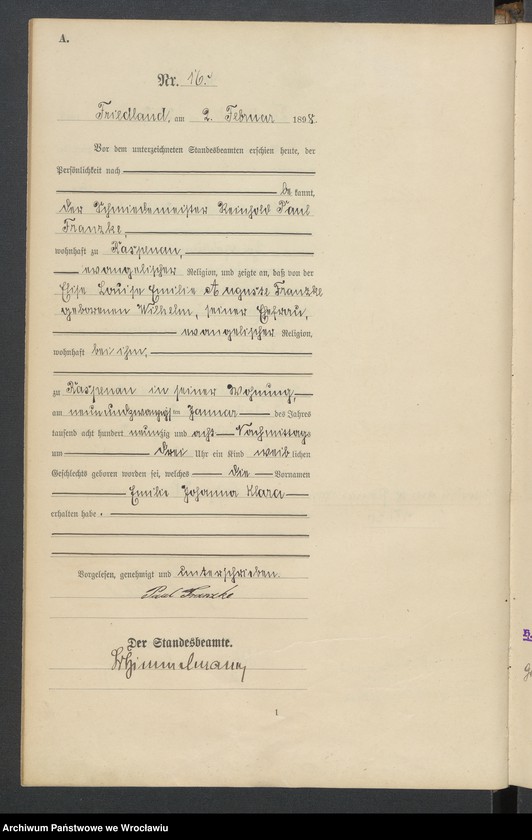 A.
Nr. 16.
Friedland, am 2. Februar 1898.
Vor dem unterzeichneten Standesbeamten erschien heute, der
Persönlichkeit nach
be kannt,
der Schmiedemeister Reinhold Paul
Franzke,
wohnhaft zu Raspenau,
evangelischer Religion, und zeigte an, daß von der
Elise Louise Emilie Auguste Franzke
geborenen Wilhelm, seiner Ehefrau,
evangelischer Religion,
wohnhaft bei ihm,
zu Raspenau in seiner Wohnung,
am neunundzwanzigsten Januar des Jahres
tausend acht hundert neunzig und acht Nachmittags
um drei Uhr ein Kind weiblichen
Geschlechts geboren worden sei, welches die Vornamen
Emilie Johanna Klara
erhalten habe.
Vorgelesen, genehmigt und unterschrieben.
Paul Franzke
Der Standesbeamte.
Himmelmann
1
Archiwum Państwowe we Wrocławiu